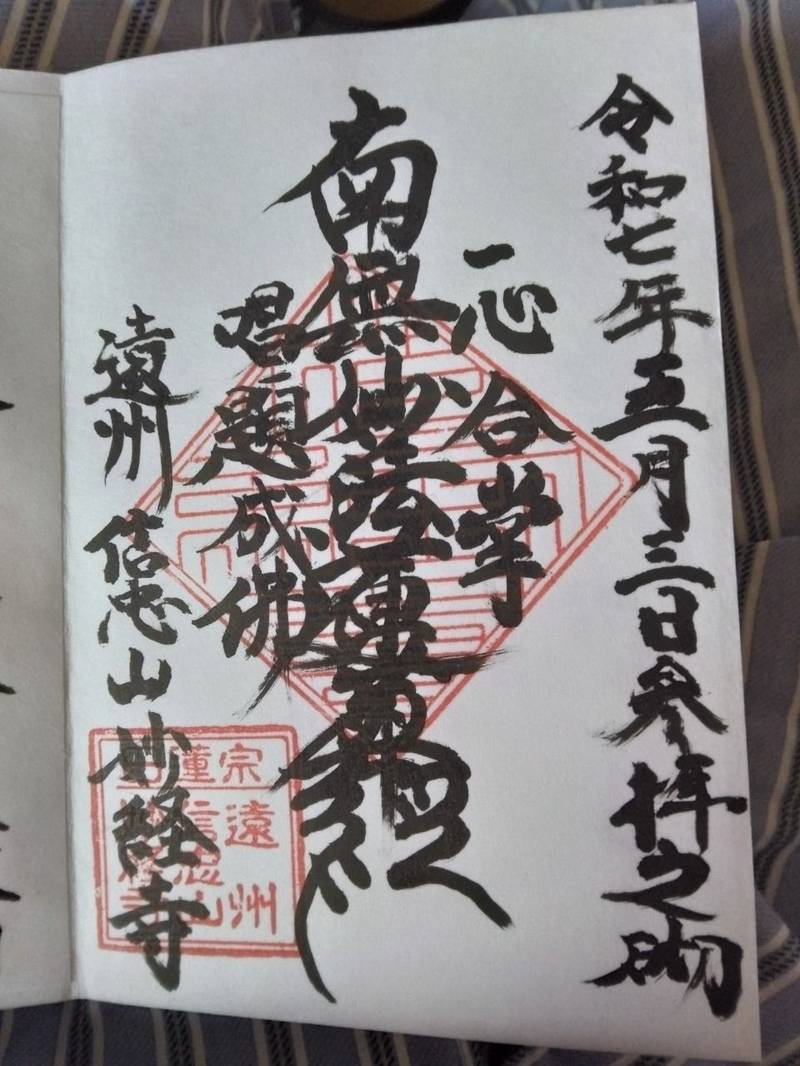 令和七年五月三日参拝之砌
一心合掌
南無妙法蓮華経
唱題成佛
遠州 信忠山 妙経寺
蓮宗
遠州
信忠山